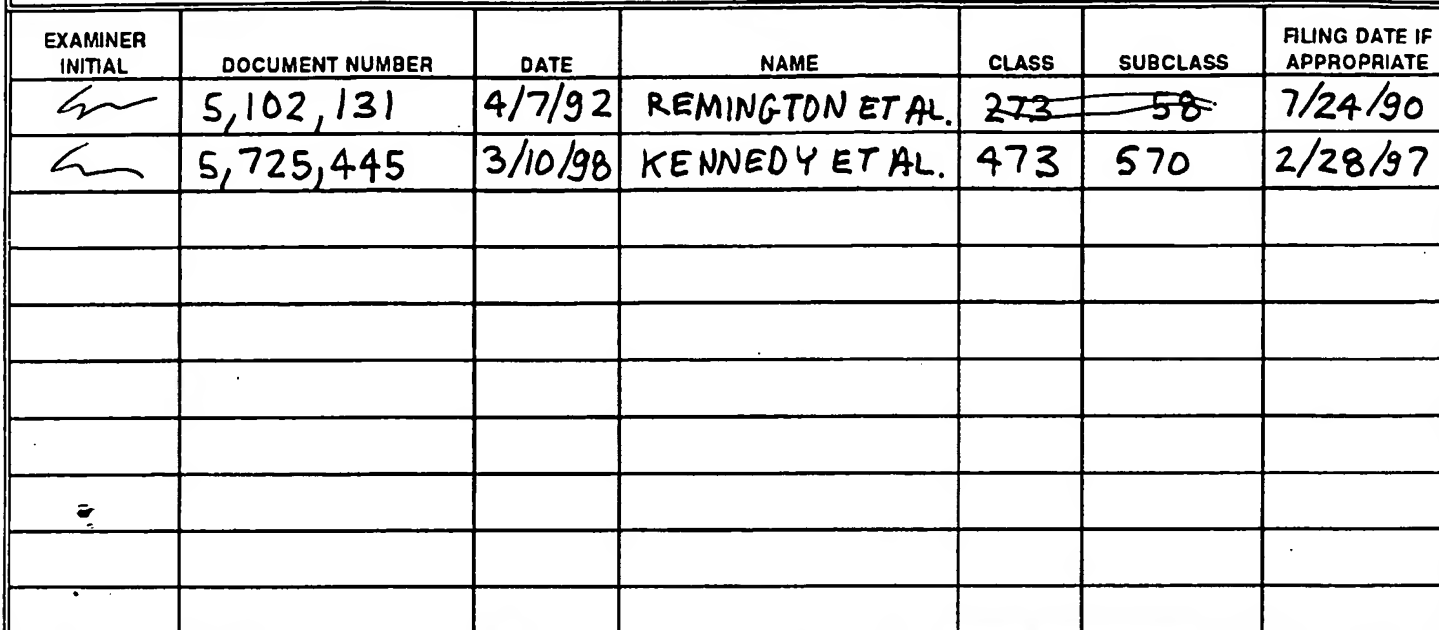 EXAMINER INITIAL DOCUMENT NUMBER DATE NAME CLASS SUBCLASS FILING DATE IF APPROPRIATE
5,102,131 4/7/92 REMINGTON ET AL. 273 58 7/24/90
5,725,445 3/10/98 KENNEDY ET AL. 473 570 2/28/97